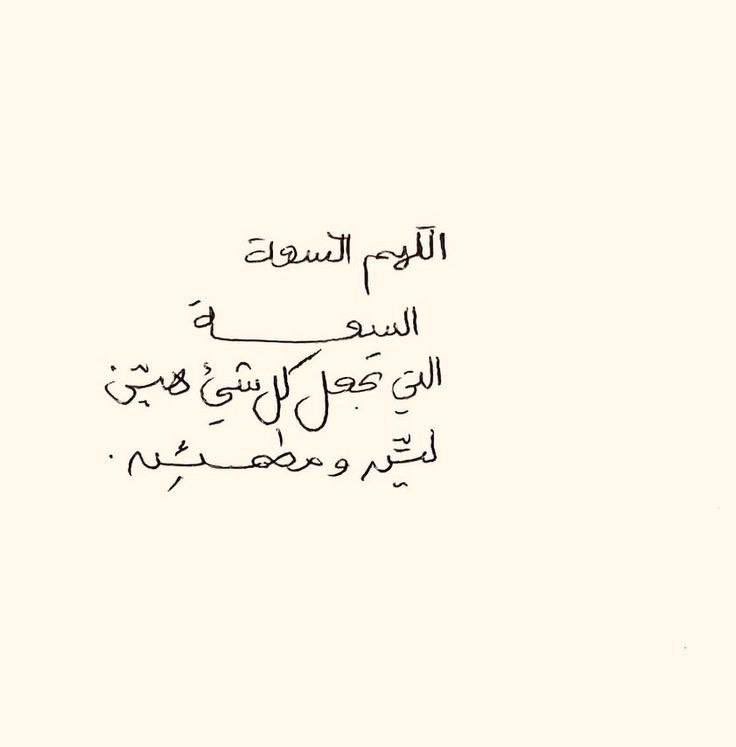 اللهم السعة
السعـــــة
التي تجعل كل شيئ هيّن
ليّن و مطمئن .